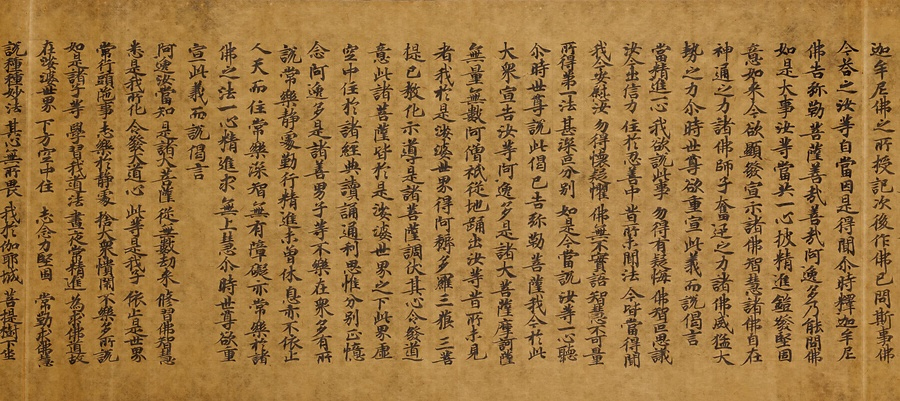 迦牟尼佛之所授記次後作佛已問斯事佛
今答之汝等自當因是得聞尒時釋迦牟尼
佛告弥勒菩薩善哉善哉阿逸多乃能問佛
如是大事汝等當共一心披精進鎧發堅固
意如來今欲顯發宣示諸佛智慧諸佛自在
神通之力諸佛師子奮迅之力諸佛威猛大
勢之力尒時世尊欲重宣此義而說偈言
當精進一心 我欲說此事 勿得有疑悔 佛智叵思議
汝今出信力 住於忍善中 昔所未聞法 今皆當得聞
我今安慰汝 勿得懷疑懼 佛無不實語 智慧不可量
所得第一法 甚深叵分別 如是今當說 汝等一心聽
尒時世尊說此偈已告弥勒菩薩我今於此
大衆宣告汝等阿逸多是諸大菩薩摩訶薩
無量無數阿僧祇從地踊出汝等昔所未見
者我於是娑婆世界得阿耨多羅三藐三菩
提已教化示導是諸菩薩調伏其心令發道
意此諸菩薩皆於是娑婆世界之下此界虛
空中住於諸經典讀誦通利思惟分別正憶
念阿逸多是諸善男子等不樂在衆多有所
說常樂靜處勤行精進未曾休息亦不依止
人天而住常樂深智無有障礙亦常樂於諸
佛之法一心精進求無上慧尒時世尊欲重
宣此義而說偈言
阿逸汝當知 是諸大菩薩 從無數劫來 修習佛智慧
悉是我所化 令發大道心 此等是我子 依止是世界
常行頭陁事 志樂於靜處 捨大衆憒鬧 不樂多所說
如是諸子等 學習我道法 晝夜常精進 為求佛道故
在娑婆世界 下方空中住 志念力堅固 常勤求智慧
說種種妙法 其心無所畏 我於伽耶城 菩提樹下坐